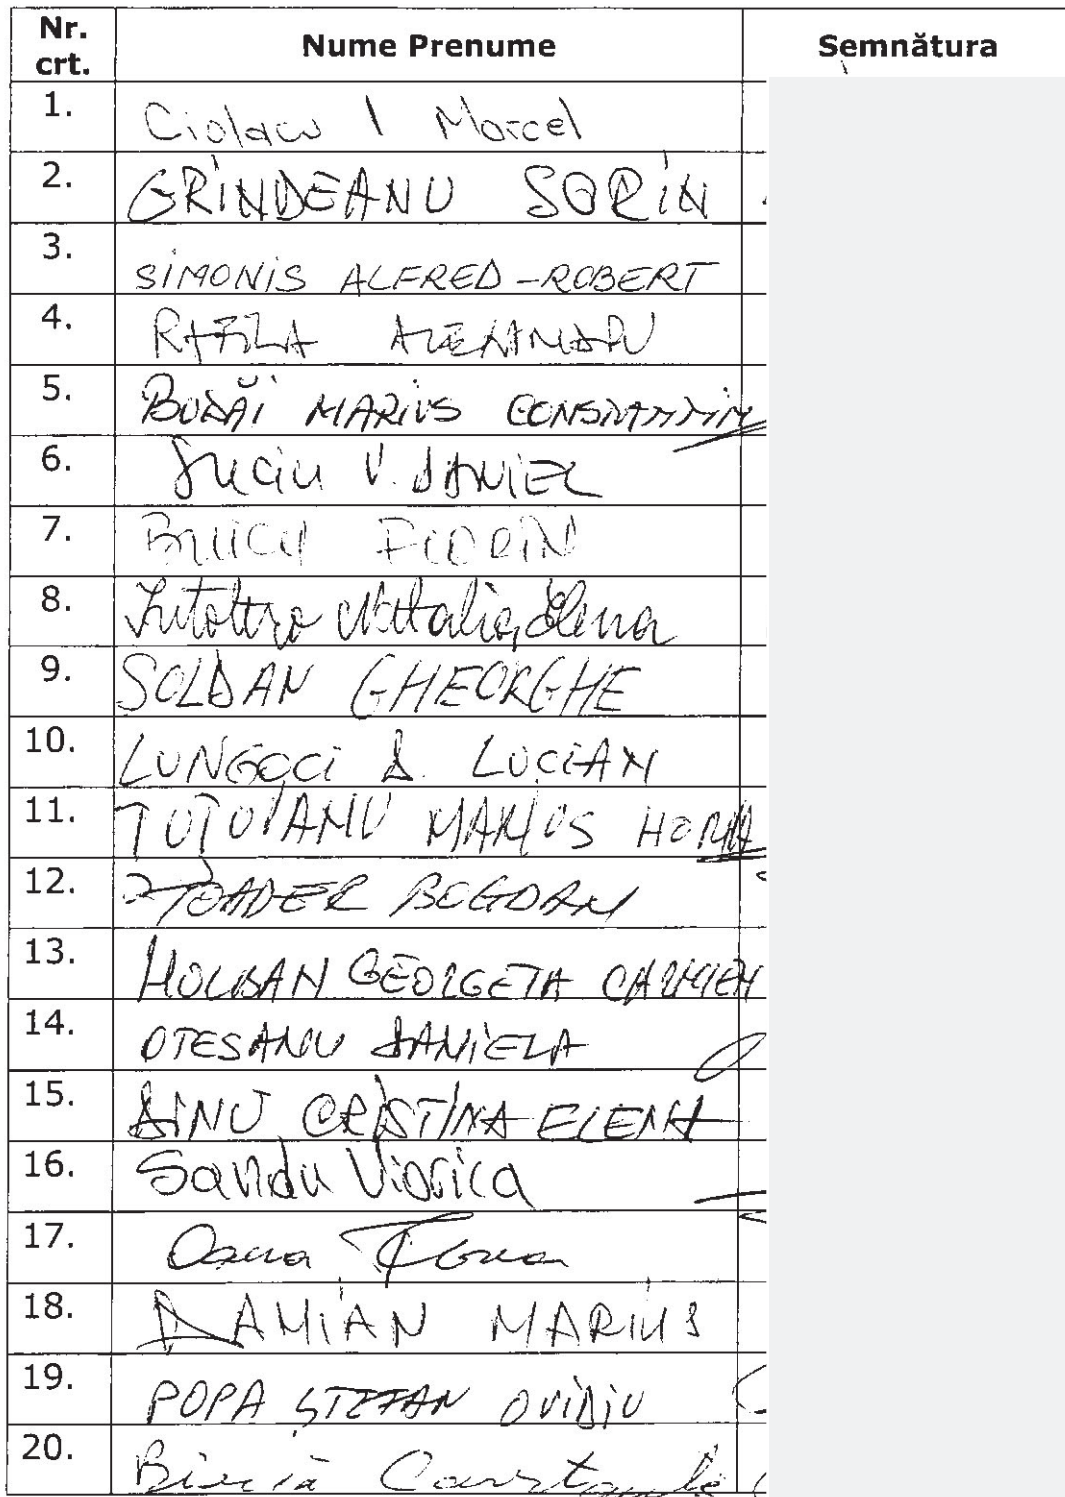 Nr. crt. Nume Prenume Semnătura
1. Ciolacu I Marcel
2. GRINDEANU SORIN
3. SIMONIS ALFRED-ROBERT
4. RAFILA ALEXANDRU
5. BUDĂI MARIUS CONSTANTIN
6. Suciu V. DANIEL
7. FLORIN
8. Intotero Natalia Elena
9. SOLDAN GHEORGHE
10. LUNGOCI D. LUCIAN
11. ȚUȚUIANU MARIUS HORIA
12. TOADER BOGDAN
13. HOLBAN GEORGETA CARMEN
14. OTESANU DANIELA
15. DINU CRISTINA ELENA
16. Sandu Viorica
17. Oana
18. DAMIAN MARIUS
19. POPA ȘTEFAN OVIDIU
20.